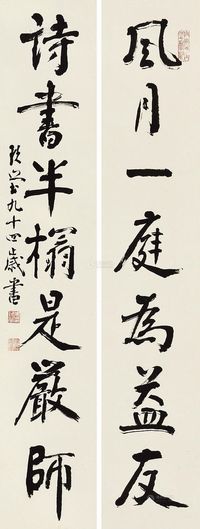 風月一庭為益友
詩書半榻是嚴師
九十四歲書